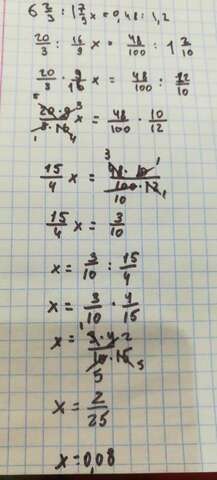 6 2/3 : 1 7/9 x = 0,48 : 1,2
20/3 : 16/9 x = 48/100 : 1 2/10
20/3 · 9/16 x = 48/100 : 12/10
5 20 · 9 3 / 1 3 · 16 4 x = 48/100 · 10/12
15/4 x = 3 48 · 10 1 / 10 100 · 12 1
15/4 x = 3/10
x = 3/10 : 15/4
x = 3/10 · 4/15
x = 1 3 · 4 2 / 5 10 · 15 5
x = 2/25
x = 0,08